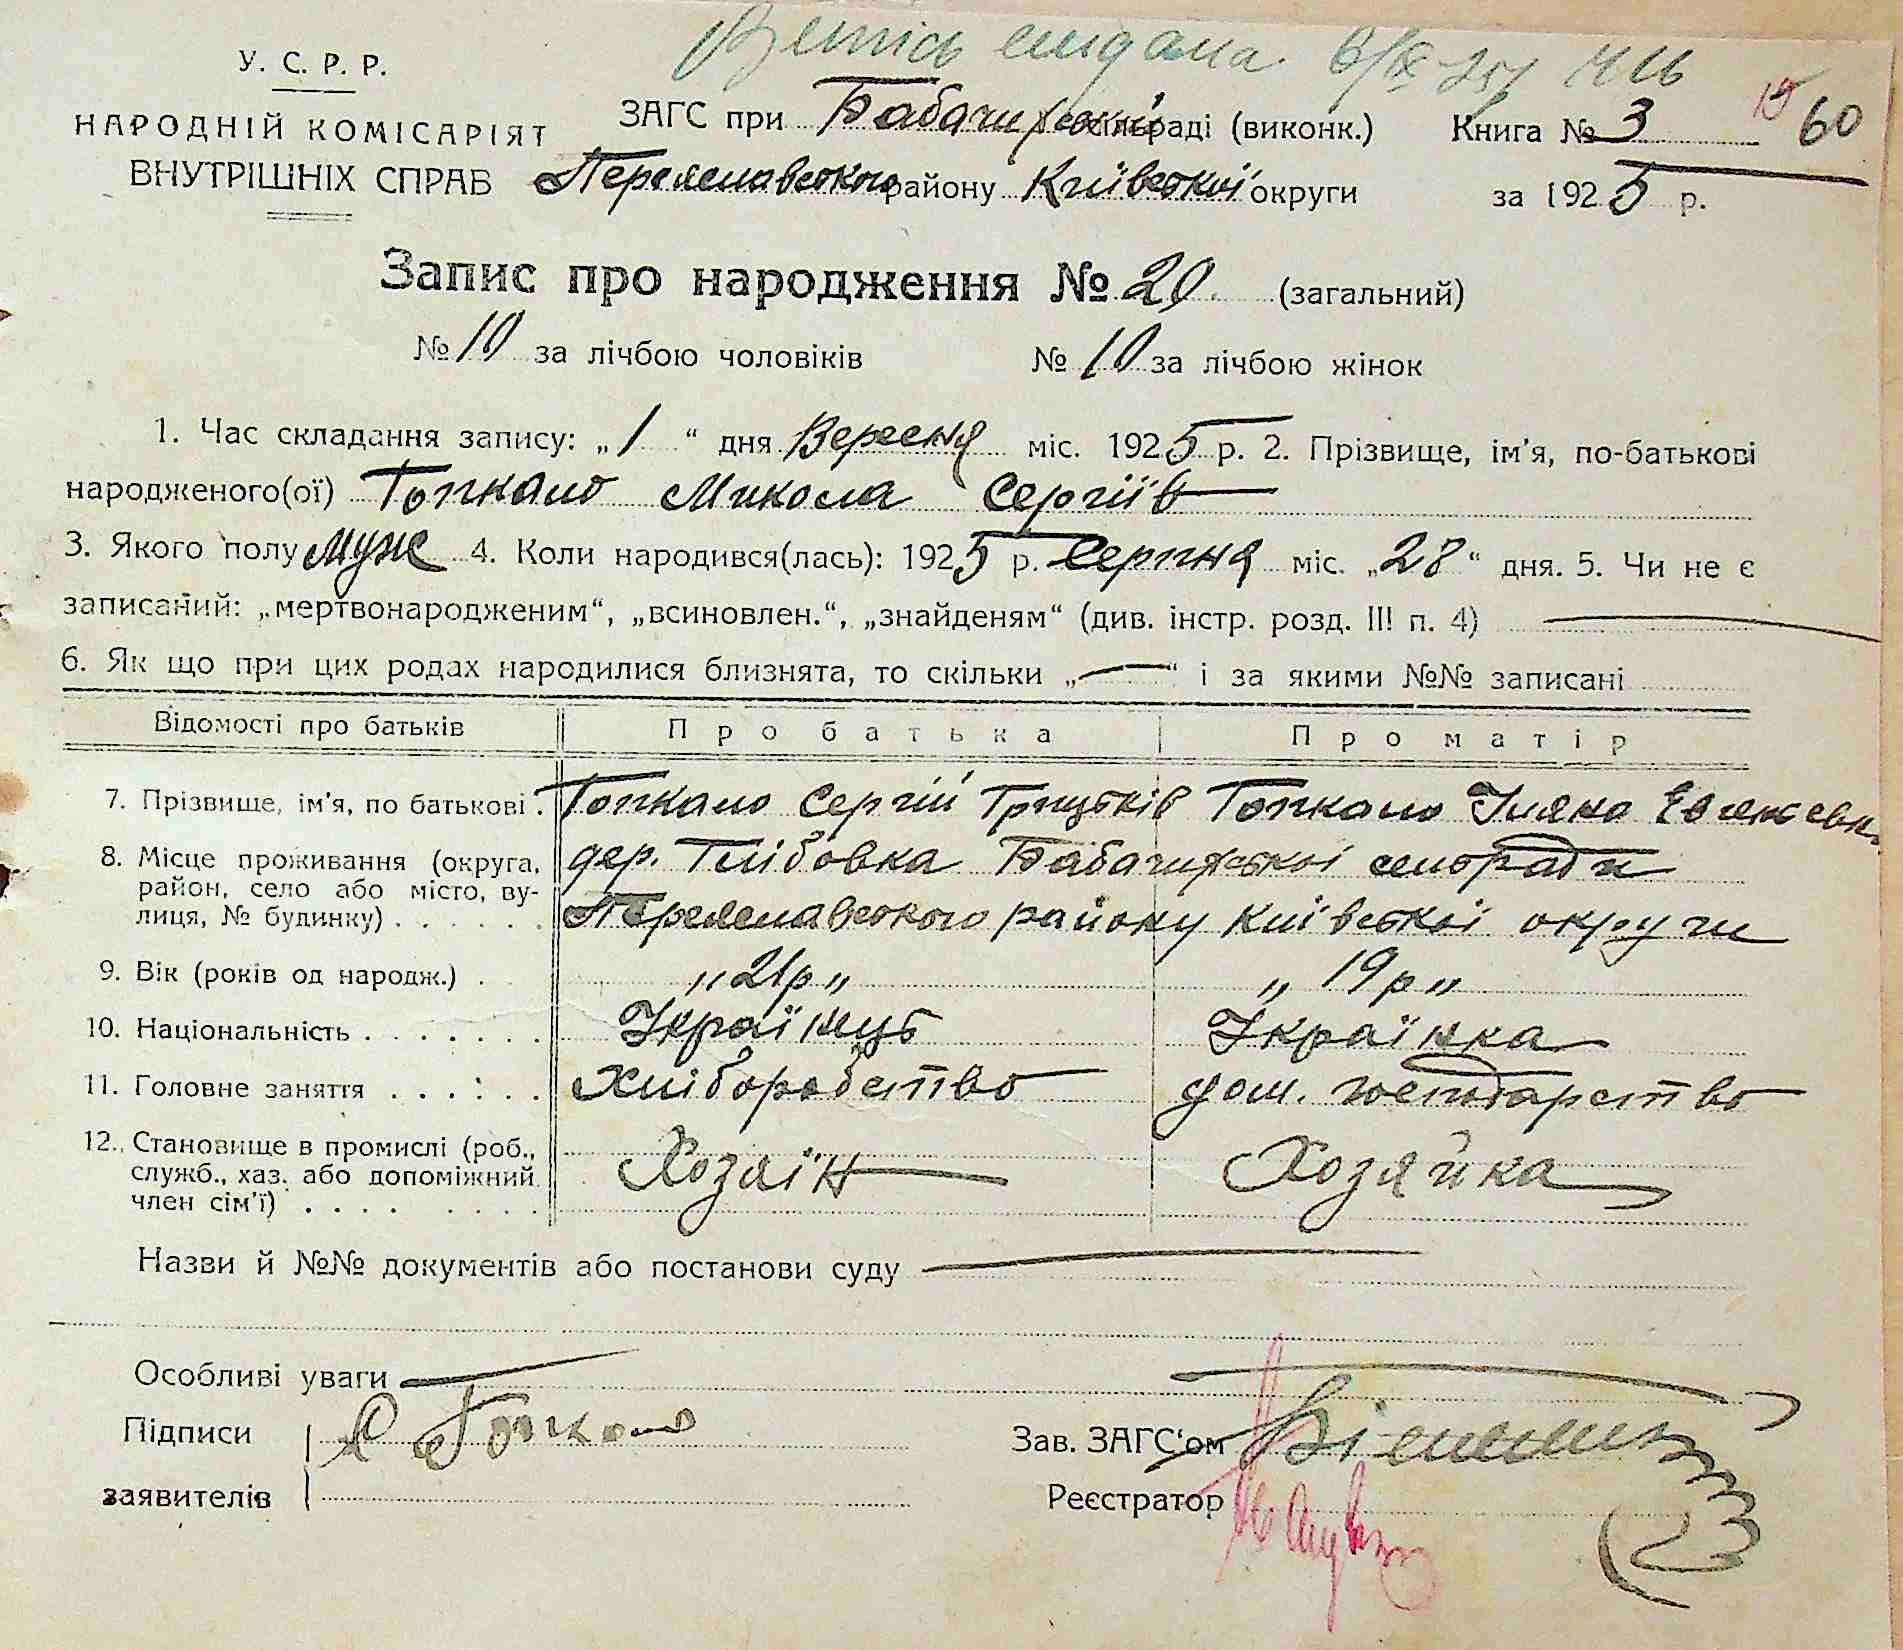 У. С. Р. Р.
НАРОДНІЙ КОМІСАРІЯТ
ВНУТРІШНІХ СПРАВ
видана 6/ІХ 25
ЗАГС при Бабачихській сільраді (виконк.) Книга № 3 60
Переяславського району Київської округи за 1925 р.
Запис про народження № 20. (загальний)
№ 10 за лічбою чоловіків № 10 за лічбою жінок
1. Час складання запису: „1“ дня Вересня міс. 1925 р. 2. Прізвище, ім'я, по-батькові
народженого(ої) Гопкало Микола Сергіїв
3. Якого полу муж 4. Коли народився(лась): 1925 р. Серпня міс. „28“ дня. 5. Чи не є
записаний: „мертвонародженим“, „всиновлен.“, „знайденям“ (див. інстр. розд. III п. 4)
6. Як що при цих родах народилися близнята, то скільки „—“ і за якими №№ записані
Відомості про батьків Про батька Про матір
7. Прізвище, ім'я, по батькові . Гопкало Сергій Грицьків Гопкало Уляна
8. Місце проживання (округа, дер. Глібовка Бабачихської сельради
район, село або місто, ву-
лиця, № будинку) . . . . . . Переяславського району Київської округи
9. Вік (років од народж.) . „21р„ „19р„
10. Національність . . . . . . . Українць Українка
11. Головне заняття . . . . . . Хліборобство дом. господарство
12. Становище в промислі (роб.,
служб., хаз. або допоміжний Хозаїн Хозяйка
член сім'ї) . . . . . . . .
Назви й №№ документів або постанови суду
Особливі уваги
Підписи С Гопкало Зав. ЗАГС'ом
заявителів Реєстратор